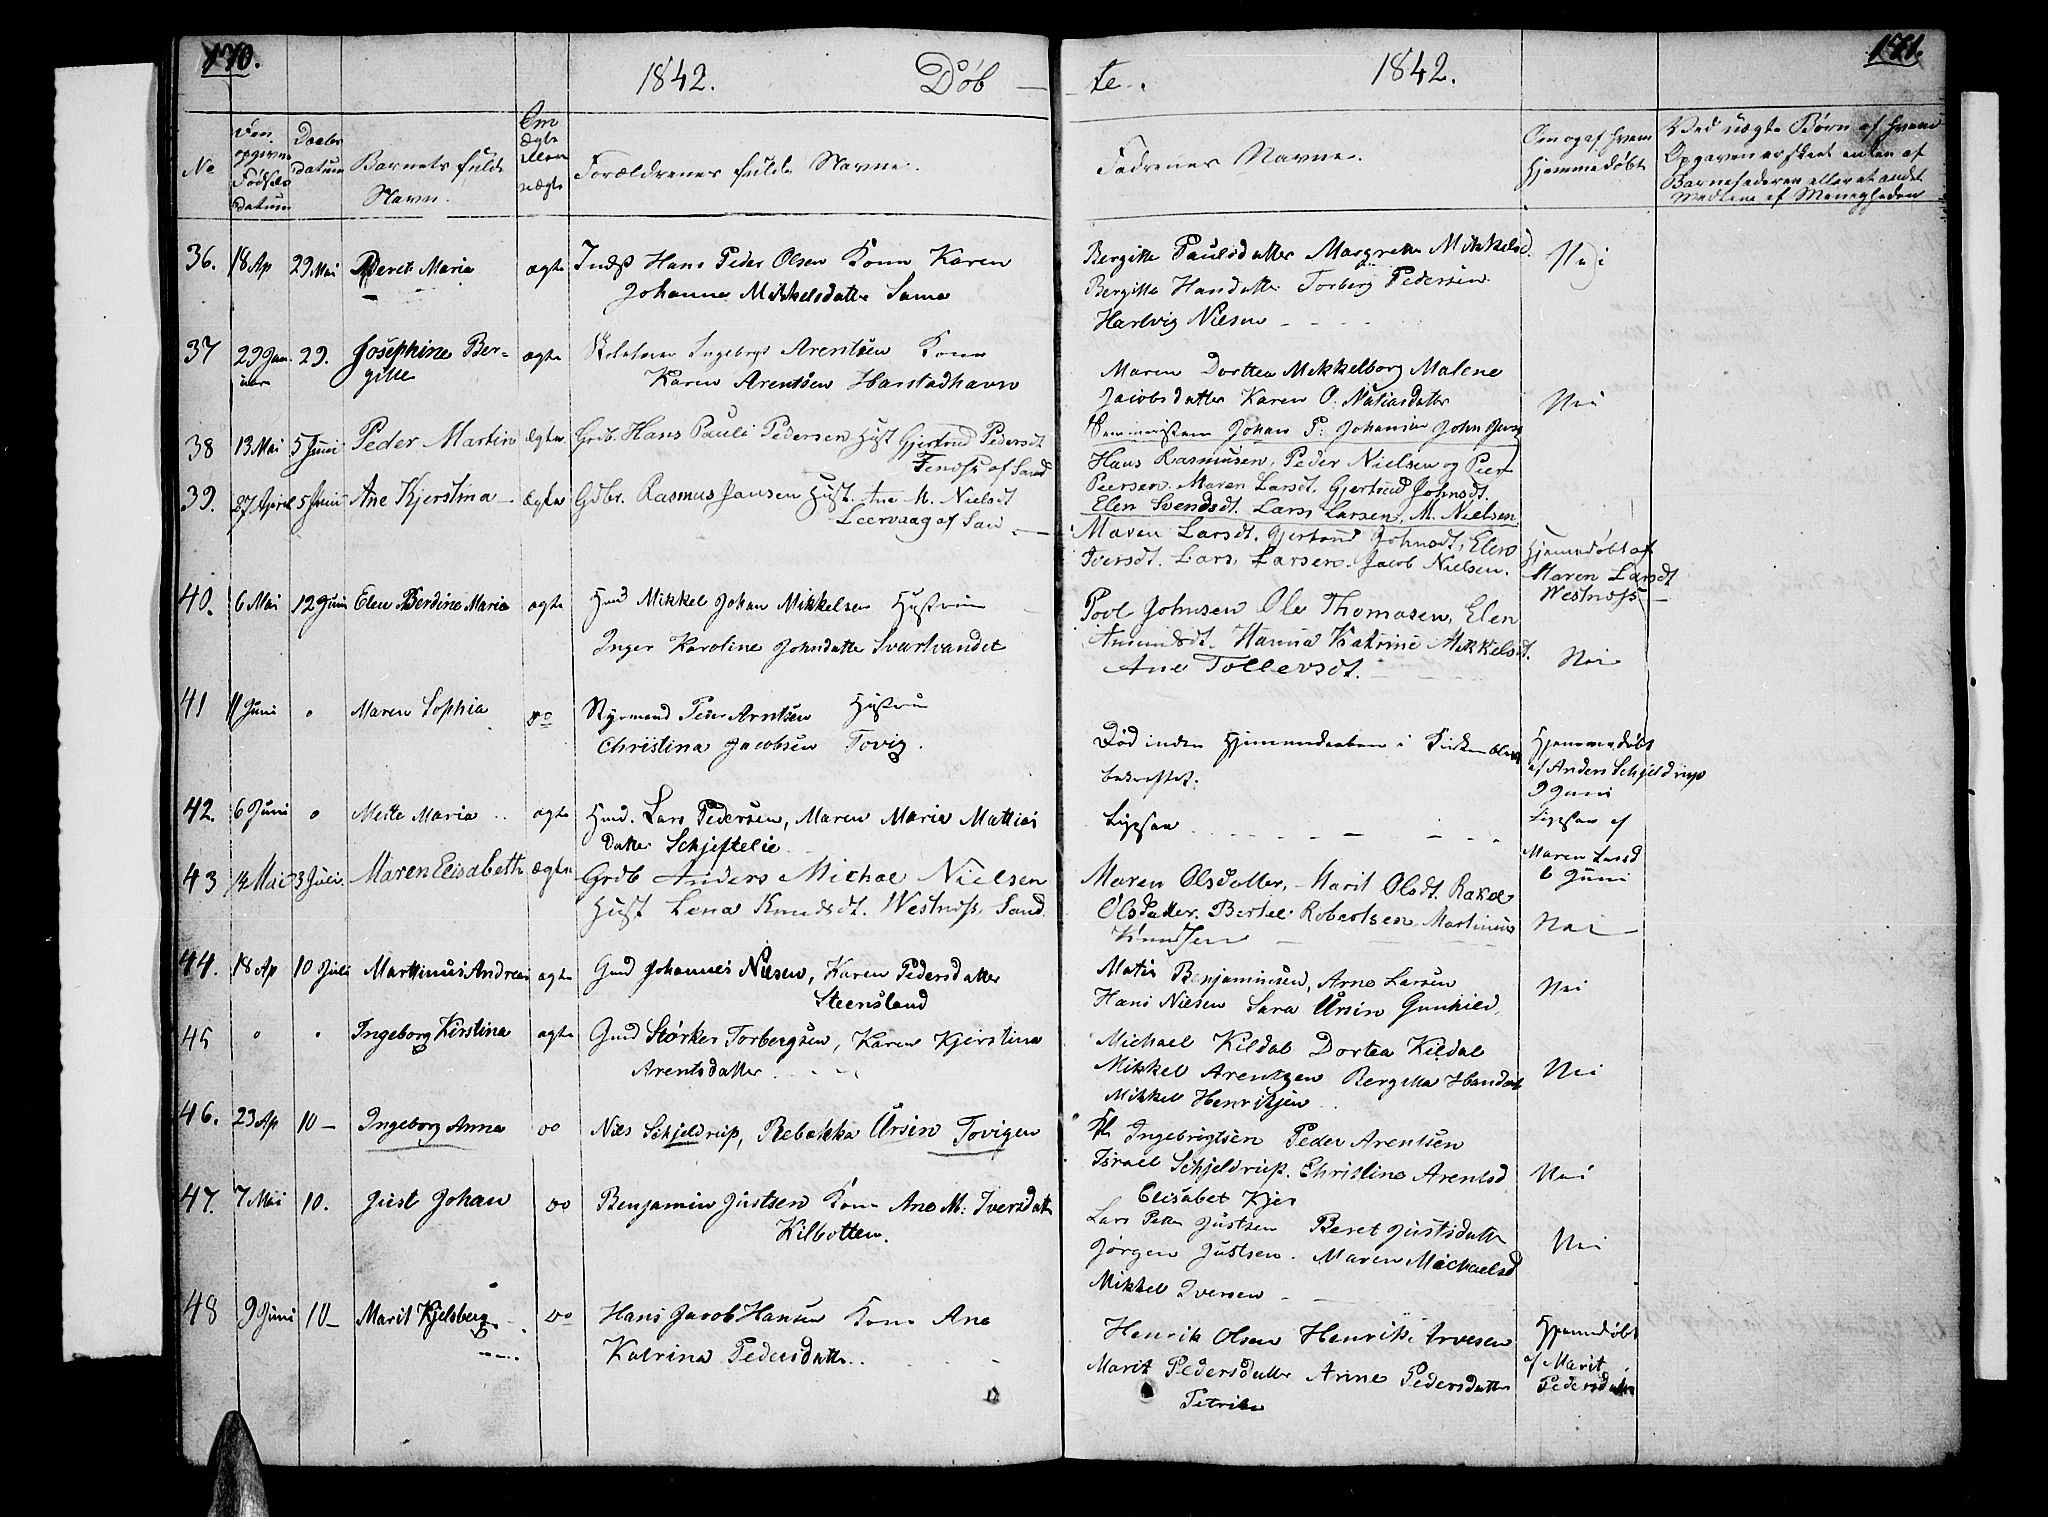 170.
1842. Døb —
No
Den opgivne Fødsels datum
Daabs datum
Barnets fulde Navn.
Om ægte eller uægte
Forældrenes fulde Navne.
36. 18 Ap 29 Mai Beret Maria ægte Inds Hans Peder Olsen Kone Karen
Johanna Mikkelsdatter Sama
37 29 Januar 29. Josephine Bergitte ægte Ingebrigt Arentsen Kone
Karen Arentsen Harstadhavn
38 13 Mai 5 Juni Peder Martin Ægte Grdb. Hans Pauli Pedersen Hust Gjertrud Pedersdt.
af Sand
39. 27 April 5 Juni Ane Kjerstina — Ægte Gdbr. Rasmus Jansen Hust. Ane M. Nielsdt
Leervaag af San —
40. 6 Mai 12 Juni Elen Berdine Maria ægte Gmd Mikkel Johan Mikkelsen Hustrue
Inger Karoline Johndatter Svartvandet
41 11 Juni " Maren Sophia do Styrmand Peter Arntsen Hustru
Christina Jacobsen Tovig.
42. 6 Juni " Mette Maria .. ægte Gmd. Lars Pedersen, Maren Maria Mathias
datter Schjeftelie
43 14 Mai 3 Juli. Maren Elisabeth Ægte Grdb Anders Michal Nielsen
Hust Lena Knudsdt. Westnæss, Sand
44. 18 Ap 10 Juli Martinus Andreas ægte Gmd Johannes Nilsen, Karen Pedersdatter
Steensland
45 " " Ingeborg Kirstina ægte Gmd Størker Torbergsen, Karen Kjerstina
Arentsdatter
46. 23 Ap 10 — Ingeborg Anna do Nils Schjeldrup, Rebekka Ursin Tovigen
47. 7 Mai 10. Just Johan do Benjamin Justsen Kone Ane M: Iversdatt
Kilbotten.
48 9 Juni 10 — Marit Kjelsberg do Hans Jacob Hansen Kone Ane
Katrina Pedersdatter
171.
te. 1842.
Fadrenes Navne.
Om og af hvem hjemmedøbt
Ved uægte Børn af hvem
Opgaven er skeet enten af
Barnefaderen eller et andet
Medlem af Menigheden
Bergitte Paulsdatter Margrethe Mikkelsd. Nei
Bergitte Hansdatter Torberg Pedersen
Hartvig Nilsen
Maren Dorthea Mikkelborg Malene
Jacobsdatter Karen O. Matiasdatter Nei
Johan P. Johansen John
Hans Rasmusen, Peder Nielsen og Peer
Peersen. Maren Larsdt. Gjertrud Johnsdt.
Elen Svendsdt. Lars Larsen, M. Nielsen
Maren Larsdt, Gjertrud Johnsdt, Elen
Iversdt. Lars Larsen. Jacob Nielsen.
Hjemmedøbt af
Maren Larsdt
Westnæss —
Povl Johnsen Ole Thomasen, Elen
Amundsdt. Hanna Katrine Mikkelsdt.
Ane Tollevsdt. Nei
Død inden Hjemmedaaben i Kirken blev
bekreftet.
Hjemmedøbt
af Anders Schjeldrup
9 Juni
Ligesaa
Ligesaa af
Maren Larsd
6 Juni
Maren Olsdatter, Marit Olsdt. Rakel
Olsdatter. Bertel Robertsen, Martinus
Knudsen Nei
Matis Benjaminsen, Arne Larsen
Hans Nilsen Sara Ursin Gunhild Nei
Michael Kildal Dortea Kildal
Mikkel Arentzen Bergitta Hansdat
Mikkel Henriksen Nei
Ingebrigtsen Peder Arentsen
Israel Schjeldrup. Christine Arentsd
Elisabet Kjer Nei
Lars Peter Justsen Beret Justsdatter
Jørgen Justsen. Maren Michaelsd
Mikkel Iversen Nei
Henrik Olsen Henrik Arvesen
Marit Pedersdatter Anne Pedersdatter
Hjemmdøbt
af Marit
Pedersdatter